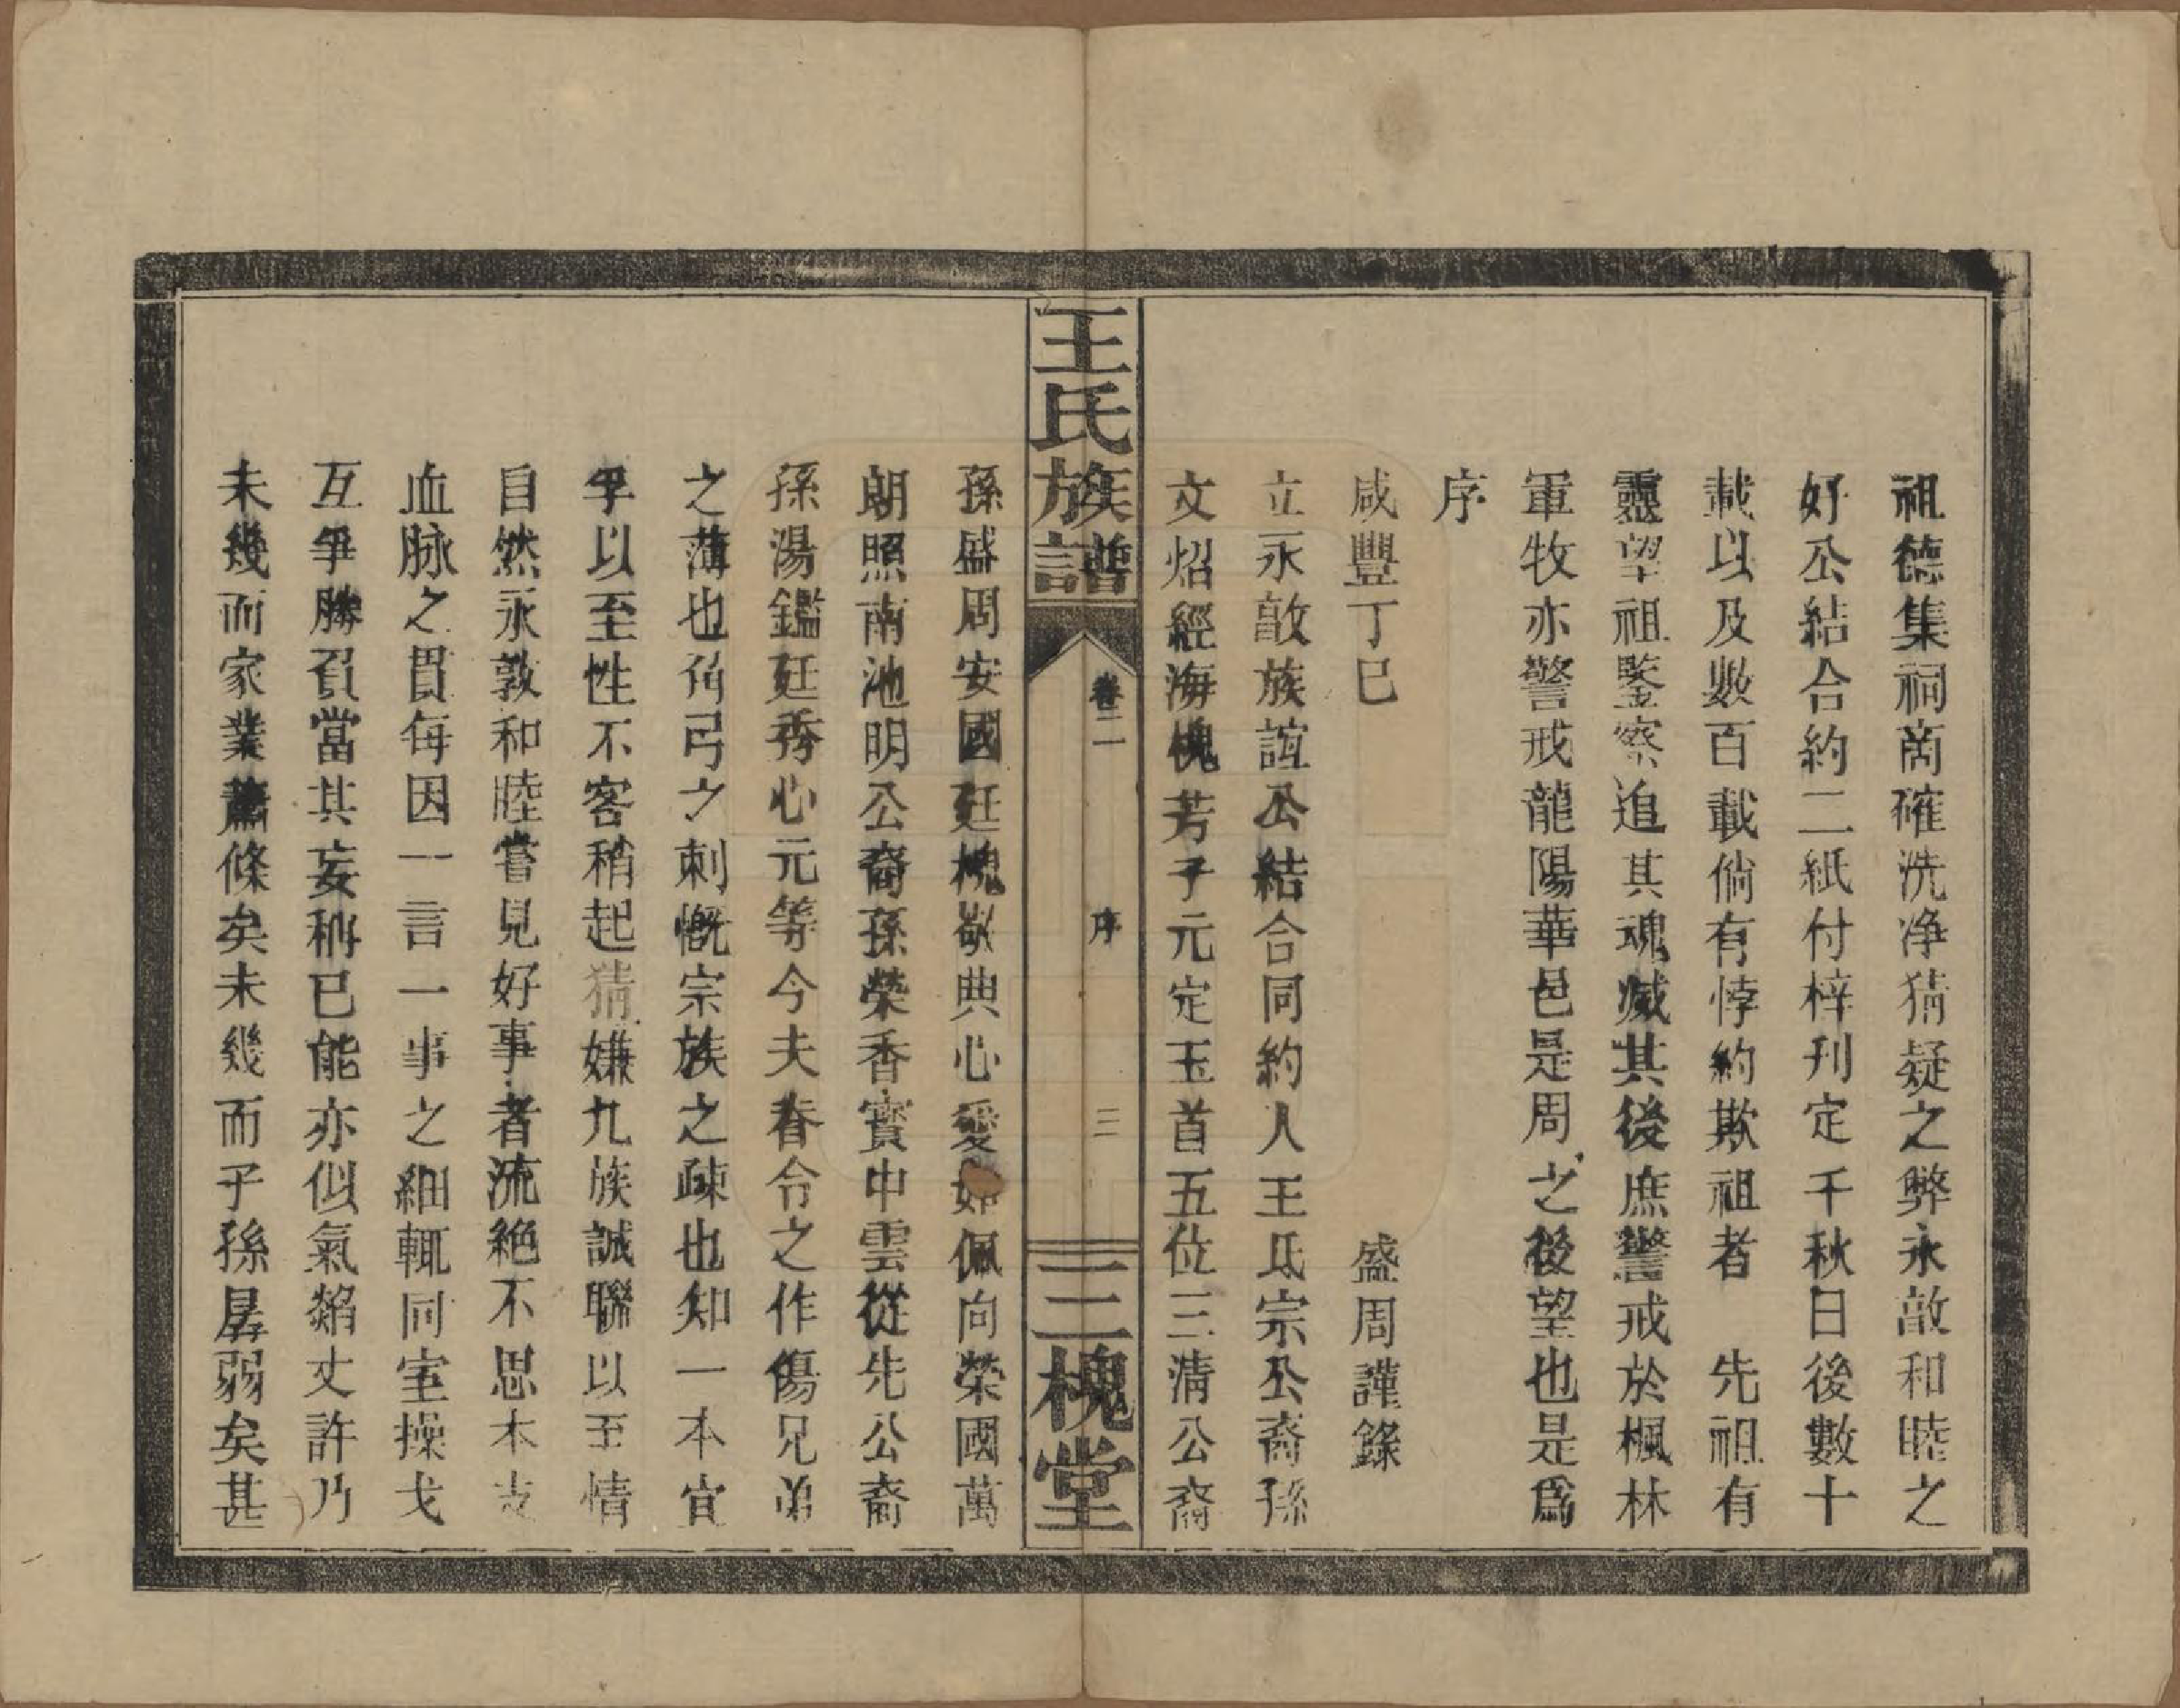 祖德集祠商確洗净猜疑之弊永敵和睦之
好公結合約二紙付梓刊定千秋日後數十
載以及數百載倘有悖約欺祖者　先祖有
靈望祖鑒察追其魂滅其後庶警戒於楓林
軍牧亦警戒龍陽華邑是周之後望也是爲
序
咸豐丁巳　盛周謹錄
立永敵族誼公結合同約人王氏宗公裔孫
文炤經海槐芳子元定玉首五位三淸公裔
王氏族譜　卷二　序　三　三槐堂
孫盛周安國廷槐敬典心愛如佩向榮國萬
朗照南池明公裔孫榮香實中雲從先公裔
孫湯鑑廷秀心元等今夫春令之作傷兄弟
之薄也角弓之刺慨宗族之疎也知一本宜
孚以至性不客稍起猜嫌九族誠聯以至情
自然永敦和睦嘗見好事者流絶不思木支
血脉之貫每因一言一事之細輒同室操戈
互爭勝負當其妄稱已能亦似氣焰丈許乃
未幾而家業蕭條矣未幾而子孫孱弱矣甚